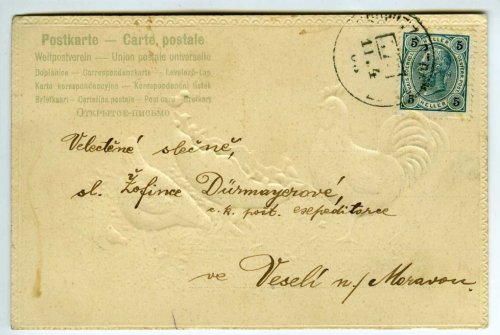 Postkarte — Carte postale
Weltpostverein — Union postale universelle
Dopisnice — Correspondenzkarte — Levelező-Lap
Karta korespondencyjna — Korespondenční lístek
Briefkaart — Cartolina postale — Post card — Brefkort
ОТКРЫТОЕ-ПИСЬМО
5 5
5 HELLER 5
11 4
Velectěné slečně,
sl. Žofince Dürmayerové
c. k. pošt. expeditorce
ve Veselí n/ Moravou.